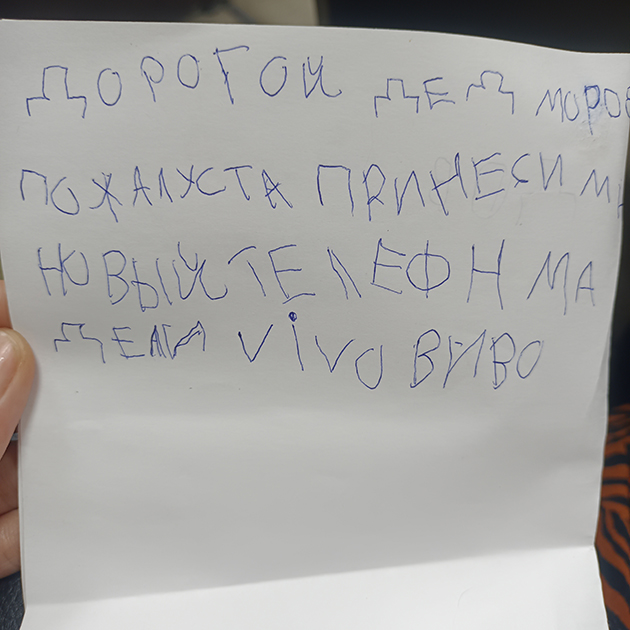 ДОРОГОЙ ДЕД МОРОЗ
ПОЖАЛУСТА ПРИНЕСИ МН
НОВЫЙ ТЕЛЕФН МА
ДЕЛИ vivo ВИВО